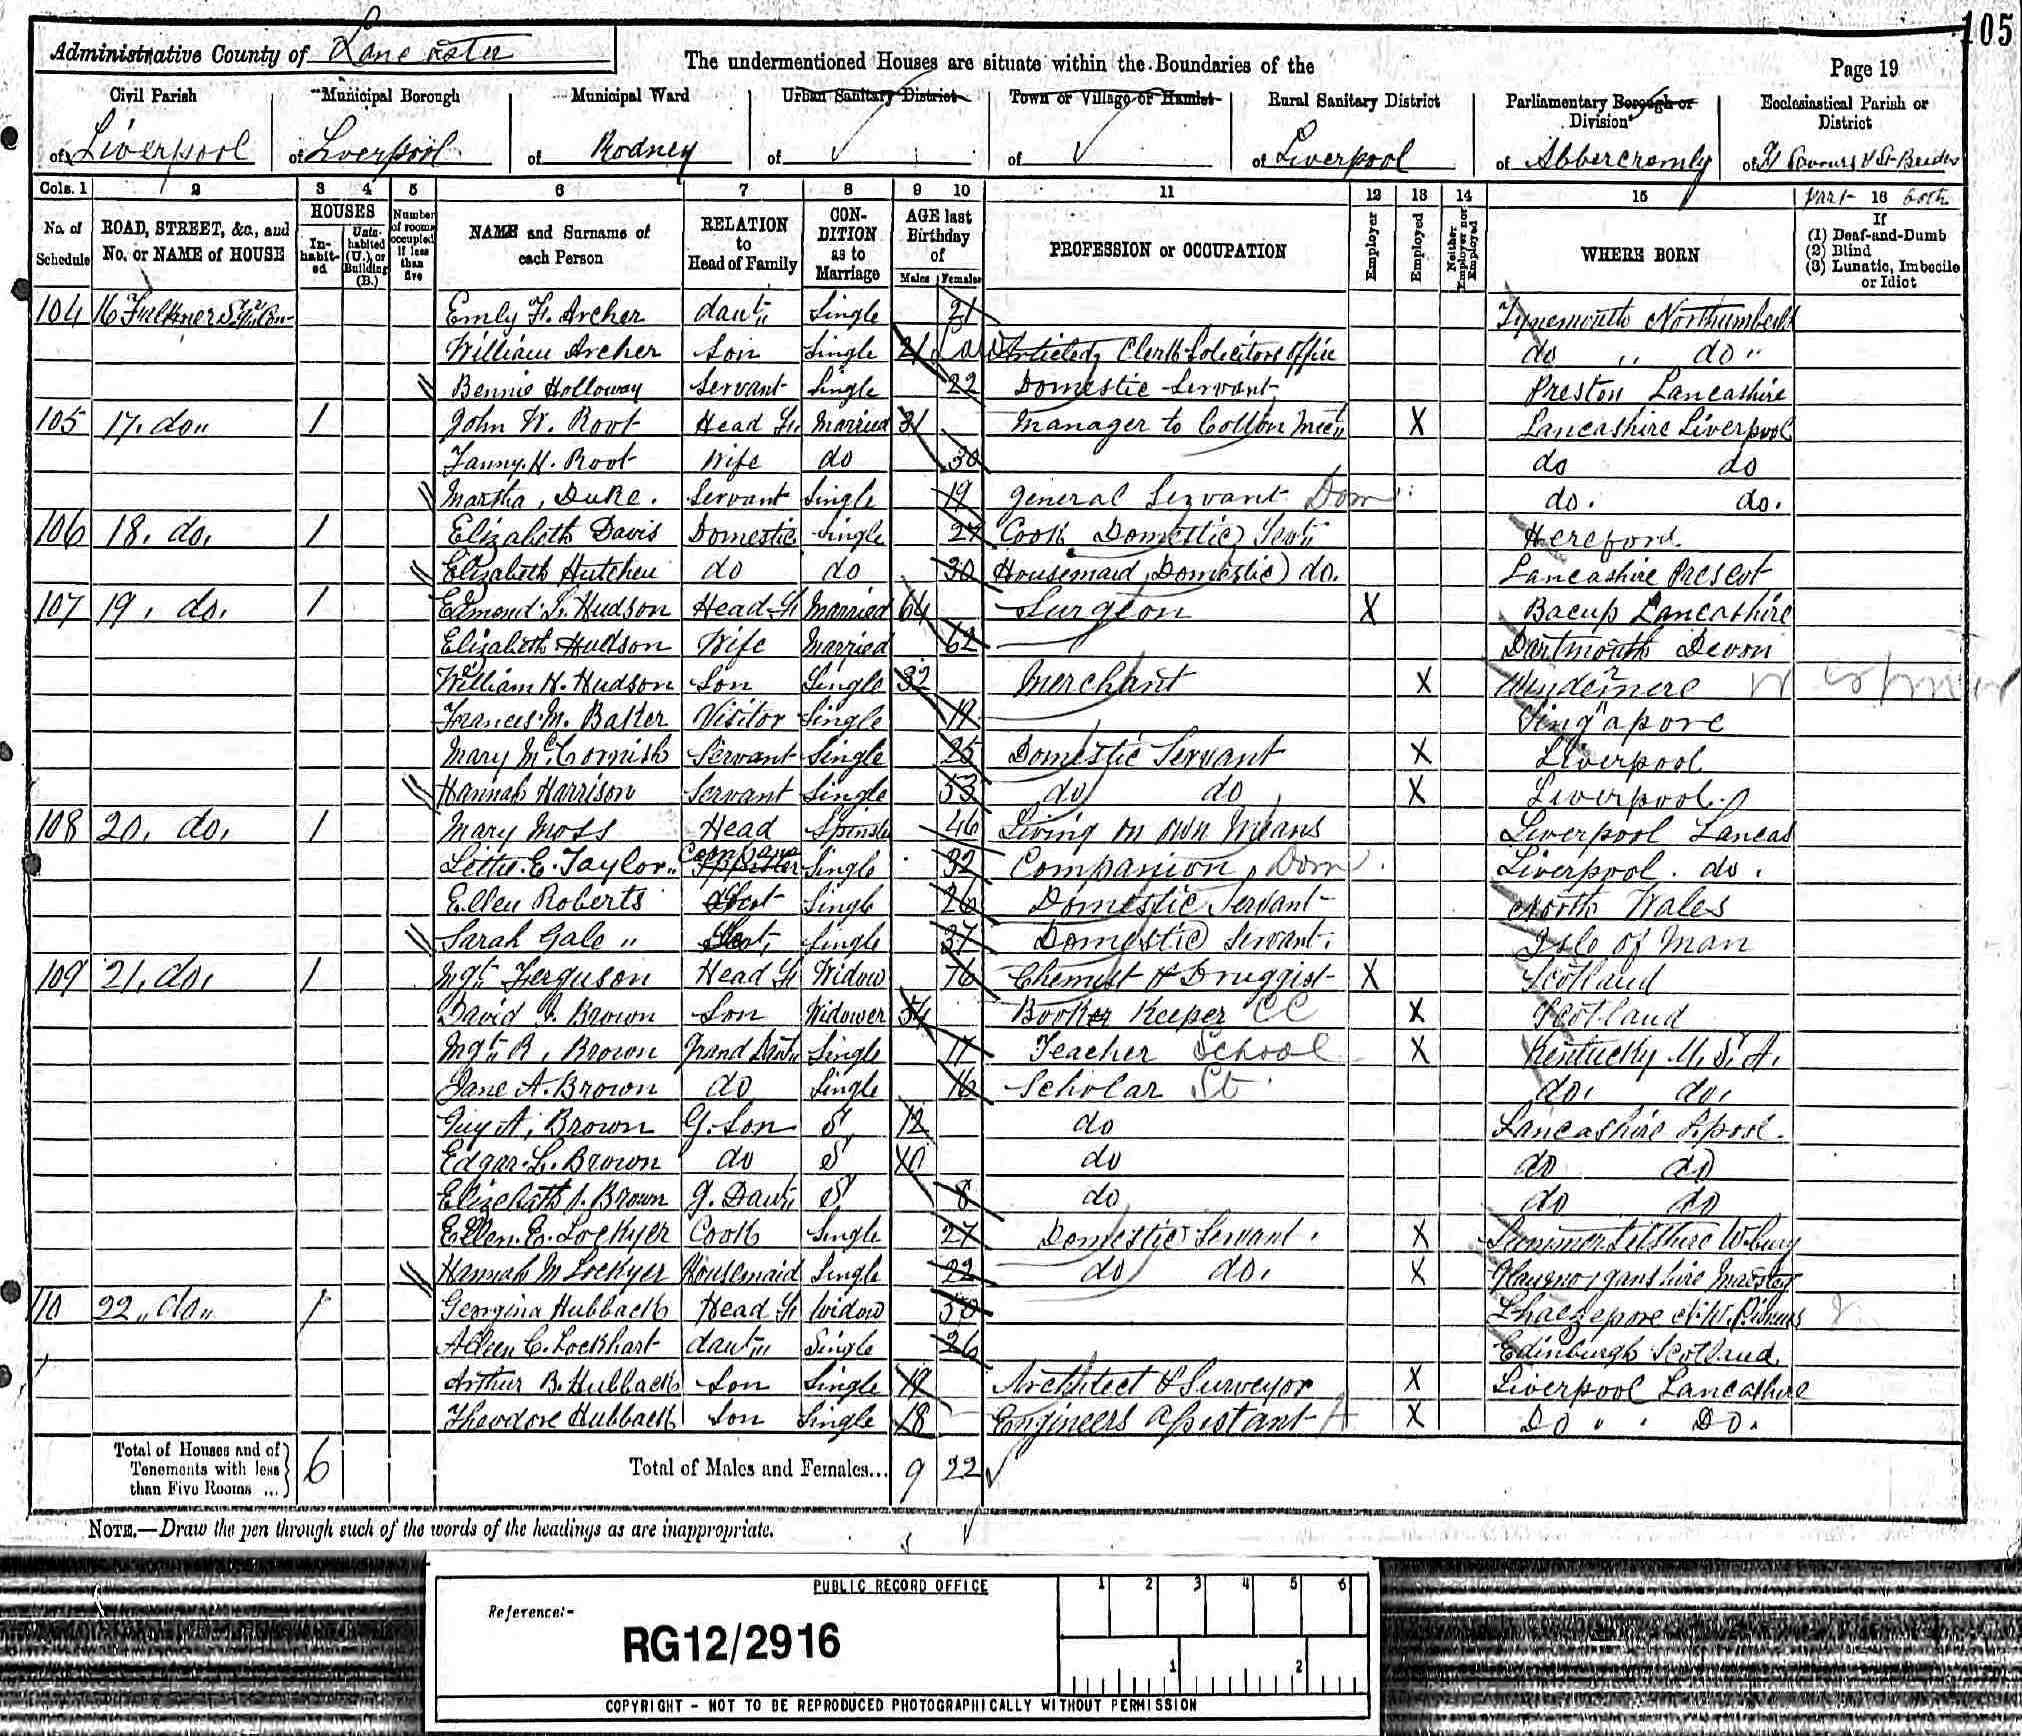 105
Administrative County of Lancaster The undermentioned Houses are situate within the Boundaries of the Page 19
Civil Parish Municipal Borough Municipal Ward Urban Sanitary District Town or Village or Hamlet Rural Sanitary District Parliamentary Borough or Division Ecclesiastical Parish or District
of Liverpool of Liverpool of Rodney of of of Liverpool of Abbercromly of
Cols. 1 2 3 4 5 6 7 8 9 10 11 12 13 14 15 part 16 both
No. of Schedule ROAD, STREET, &c., and No. or NAME of HOUSE HOUSES Inhabited Uninhabited (U.), or Building (B.) Number of rooms occupied if less than five NAME and Surname of each Person RELATION to Head of Family CONDITION as to Marriage AGE last Birthday of Males Females PROFESSION or OCCUPATION Employer Employed Neither Employer nor Employed WHERE BORN If (1) Deaf-and-Dumb (2) Blind (3) Lunatic, Imbecile or Idiot
104 16 Falkner Emly F. Archer daut" Single Tynemouth
William Archer Son Single 21 Articled Clerk Solicitors office do " do "
Bennie Holloway Servant Single 22 Domestic Servant Preston Lancashire
105 17, do" 1 John W. Root Head Married 31 Manager to Cotton X Lancashire Liverpool
Fanny. H. Root Wife do 30 do do
Martha, Duke. Servant Single 19 General Servant Dom do. do.
106 18. do, 1 Elizabeth Davis Domestic Single 27 Cook Domestic Hereford.
Elizabeth Hutchen do do 30 Housemaid (Domestic) do. Lancashire Prescot
107 19, do, 1 Edmond L. Hudson Head Married 64 Surgeon X Bacup Lancashire
Elizabeth Hudson Wife Married 62 Dartmouth Devon
William H. Hudson Son Single 32 Merchant X Windermere
Frances M. Baker Visitor Single 19 Singapore
Mary Mc Cornish Servant Single 25 Domestic Servant X Liverpool
Hannah Harrison Servant Single 53 do do X Liverpool.
108 20, do, 1 Mary Moss Head 46 Living on own Means Liverpool Lancas
E. Taylor Single 32 Companion, Dom Liverpool. do.
Ellen Roberts Single 26 Domestic Servant North Wales
Sarah Gale " Single 37 Domestic Servant. Isle of Man
109 21, do, 1 Mgt Ferguson Head Widow 76 Chemist & Druggist X Scotland
David J. Brown Son Widower 54 Book Keeper CC X Scotland
Mgt" R, Brown Grand Daut" Single Teacher School X Kentucky U.S.A.
Jane A. Brown do Single 16 Scholar St do. do.
Guy A, Brown G. Son S 12 do Lancashire L.pool.
Edgar L. Brown do S 10 do do do
Elizebath J. Brown G. Daut" S 8 do do do
Ellen. E. Lockyer Cook Single 27 Domestic Servant. X
Hannah M Lockyer Housemaid Single 22 do do. X
110 22 " do " 1 Georgina Hubback Head Widow 50
C. Lockhart daut" Single 26 Edinburgh Scotland.
Arthur B. Hubback Son Single 19 Architect & Surveyor X Liverpool Lancashire
Theodore Hubback Son Single 18 Engineers Assistant X Do " " Do.
Total of Houses and of Tenements with less than Five Rooms ... 6 Total of Males and Females... 9 22
NOTE.—Draw the pen through such of the words of the headings as are inappropriate.
PUBLIC RECORD OFFICE 1 2 3 4 5 6
Reference:-
RG12/2916
1 2
COPYRIGHT - NOT TO BE REPRODUCED PHOTOGRAPHICALLY WITHOUT PERMISSION